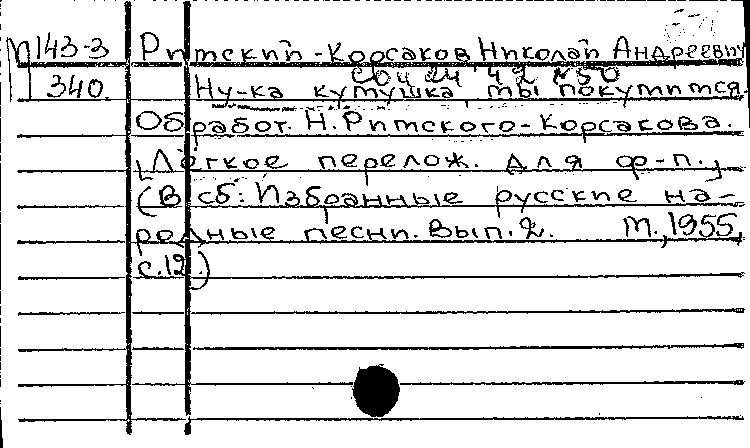 М143-3 Римский-Корсаков Николай Андреевич
340. Ну-ка кумушка, мы покумимся.
Обработ. Н. Римского-Корсакова.
[Легкое перелож. для ф-п.]
(В сб: Избранные русские на-
родные песни. Вып. 2. М., 1955,
с.12.)